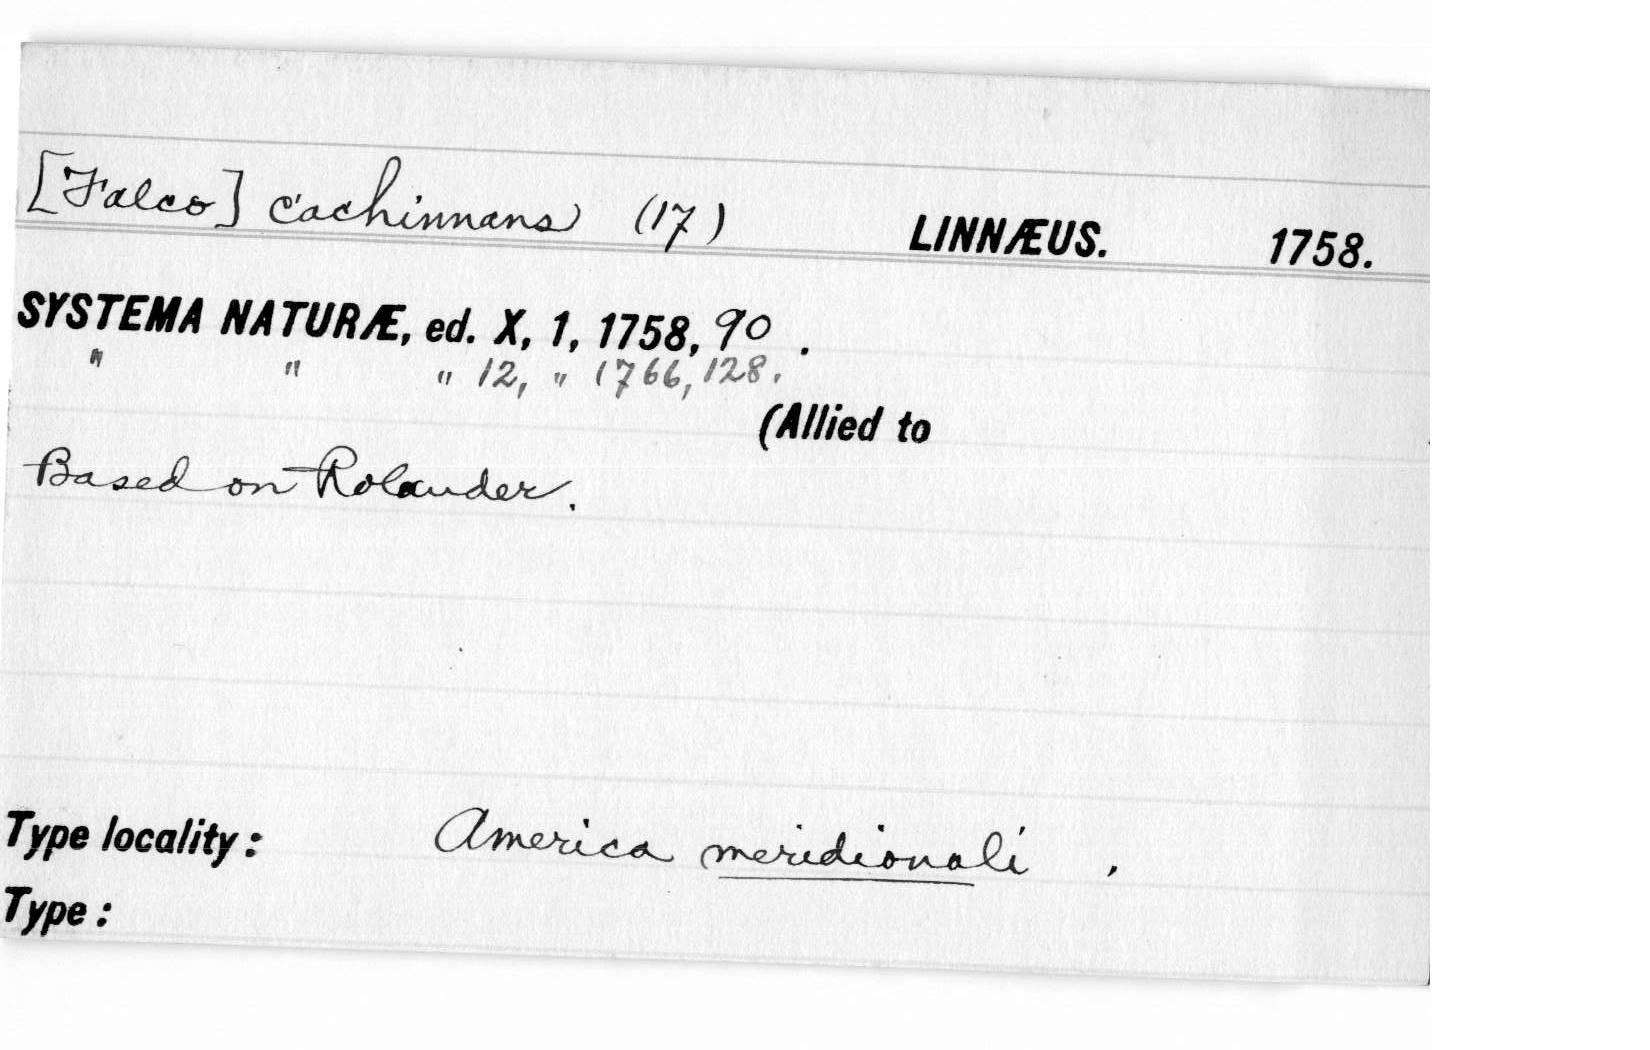 [Falco] cachinnans (17) LINNÆUS. 1758.
SYSTEMA NATURÆ, ed. X, 1, 1758, 90 .
" " " 12, " 1766, 128.
(Allied to
Based on Rolander.
Type locality: America meridionali .
Type: